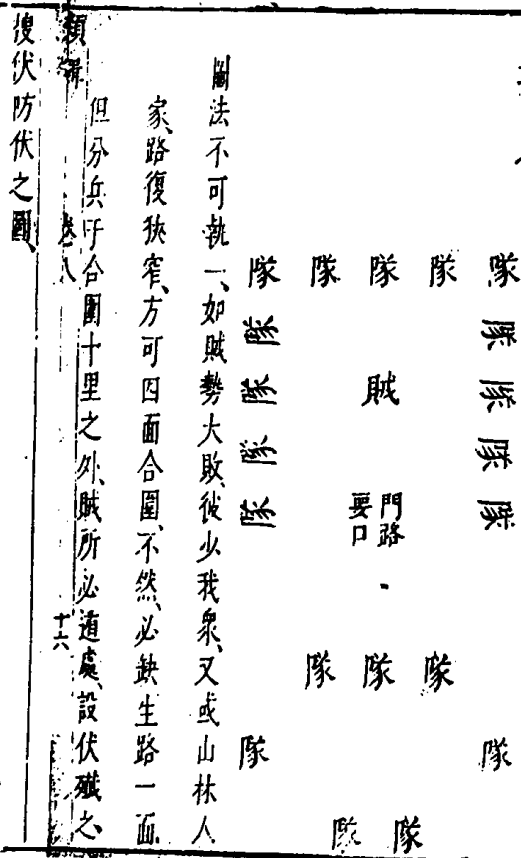 隊隊隊隊隊隊
隊隊
隊
隊賊門路隊
要口
隊隊
隊
隊隊隊隊隊隊
圍法不可執一、如賊勢大敗、彼少我衆、又或山林人
家、路復狹窄、方可四面合圍、不然、必缺生路一面、
但分兵于合圍十里之外、賊所必遁處、設伏殲之、
卷八 十六
搜伏防伏之圖、